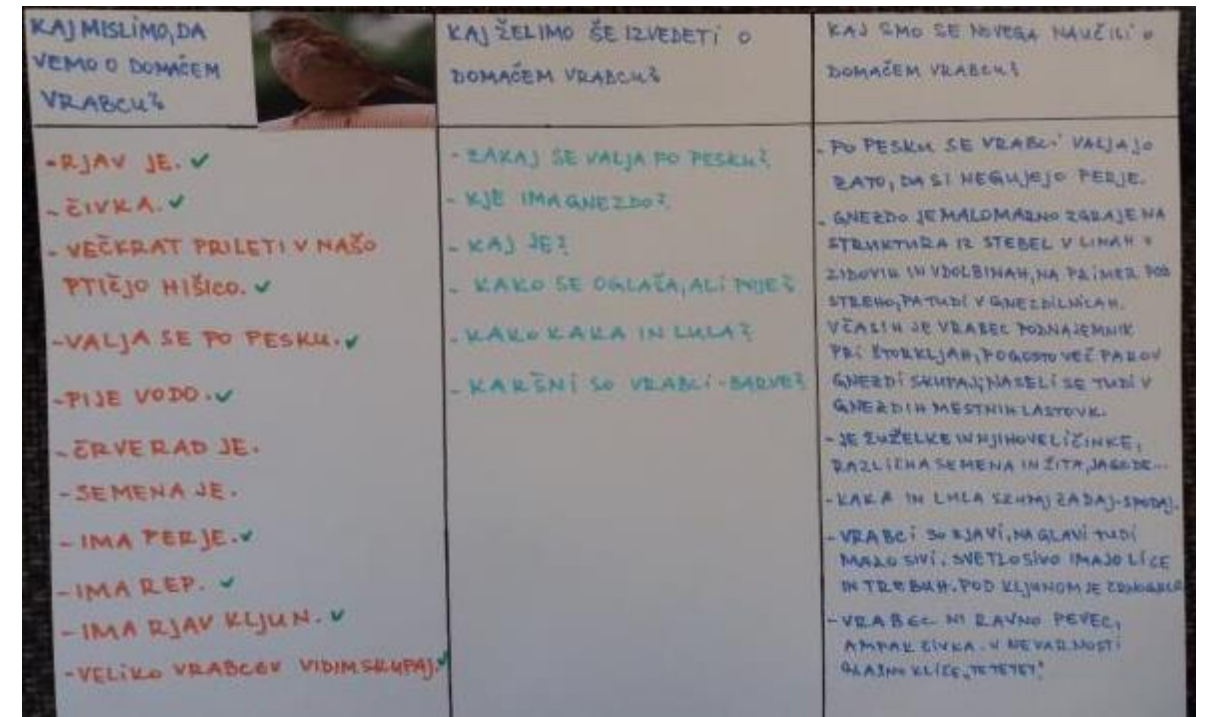 KAJ MISLIMO, DA
VEMO O DOMAČEM
VRABCU?
-RJAV JE. ✓
-ČIVKA. ✓
-VEČKRAT PRILETI V NAŠO
PTIČJO HIŠICO. ✓
-VALJA SE PO PESKU. ✓
-PIJE VODO. ✓
-ČRVE RAD JE.
-SEMENA JE.
-IMA PERJE. ✓
-IMA REP. ✓
-IMA RJAV KLJUN. ✓
-VELIKO VRABCEV VIDIM SKUPAJ. ✓
KAJ ŽELIMO ŠE IZVEDETI O
DOMAČEM VRABCU?
-ZAKAJ SE VALJA PO PESKU?
-KJE IMA GNEZDO?
-KAJ JE?
-KAKO SE OGLAŠA, ALI POJE?
-KAKO KAKA IN LULA?
-KAKŠNI SO VRABCI-BARVE?
KAJ SMO SE NOVEGA NAUČILI O
DOMAČEM VRABCU?
-PO PESKU SE VRABCI VALJAJO
ZATO, DA SI NEGUJEJO PERJE.
-GNEZDO JE MALOMARNO ZGRAJENA
STRUKTURA IZ STEBEL V LINAH V
ZIDOVIH IN VDOLBINAH, NA PRIMER POD
STREHO, PA TUDI V GNEZDILNICAH.
VČASIH JE VRABEC PODNAJEMNIK
PRI ŠTORKLJAH, POGOSTO VEČ PAROV
GNEZDI SKUPAJ; NASELI SE TUDI V
GNEZDIH MESTNIH LASTOVK.
-JE ŽUŽELKE IN NJIHOVE LIČINKE,
RAZLIČNA SEMENA IN ŽITA, JAGODE...
-KAKA IN LULA SKUPAJ ZADAJ-SPODAJ.
-VRABCI SO RJAVI, NA GLAVI TUDI
MALO SIVI. SVETLOSIVO IMAJO LICE
IN TREBUH. POD KLJUNOM JE
-VRABEC NI RAVNO PEVEC,
AMPAK ČIVKA. V NEVARNOSTI
GLASNO KLIČE, "TETETET".